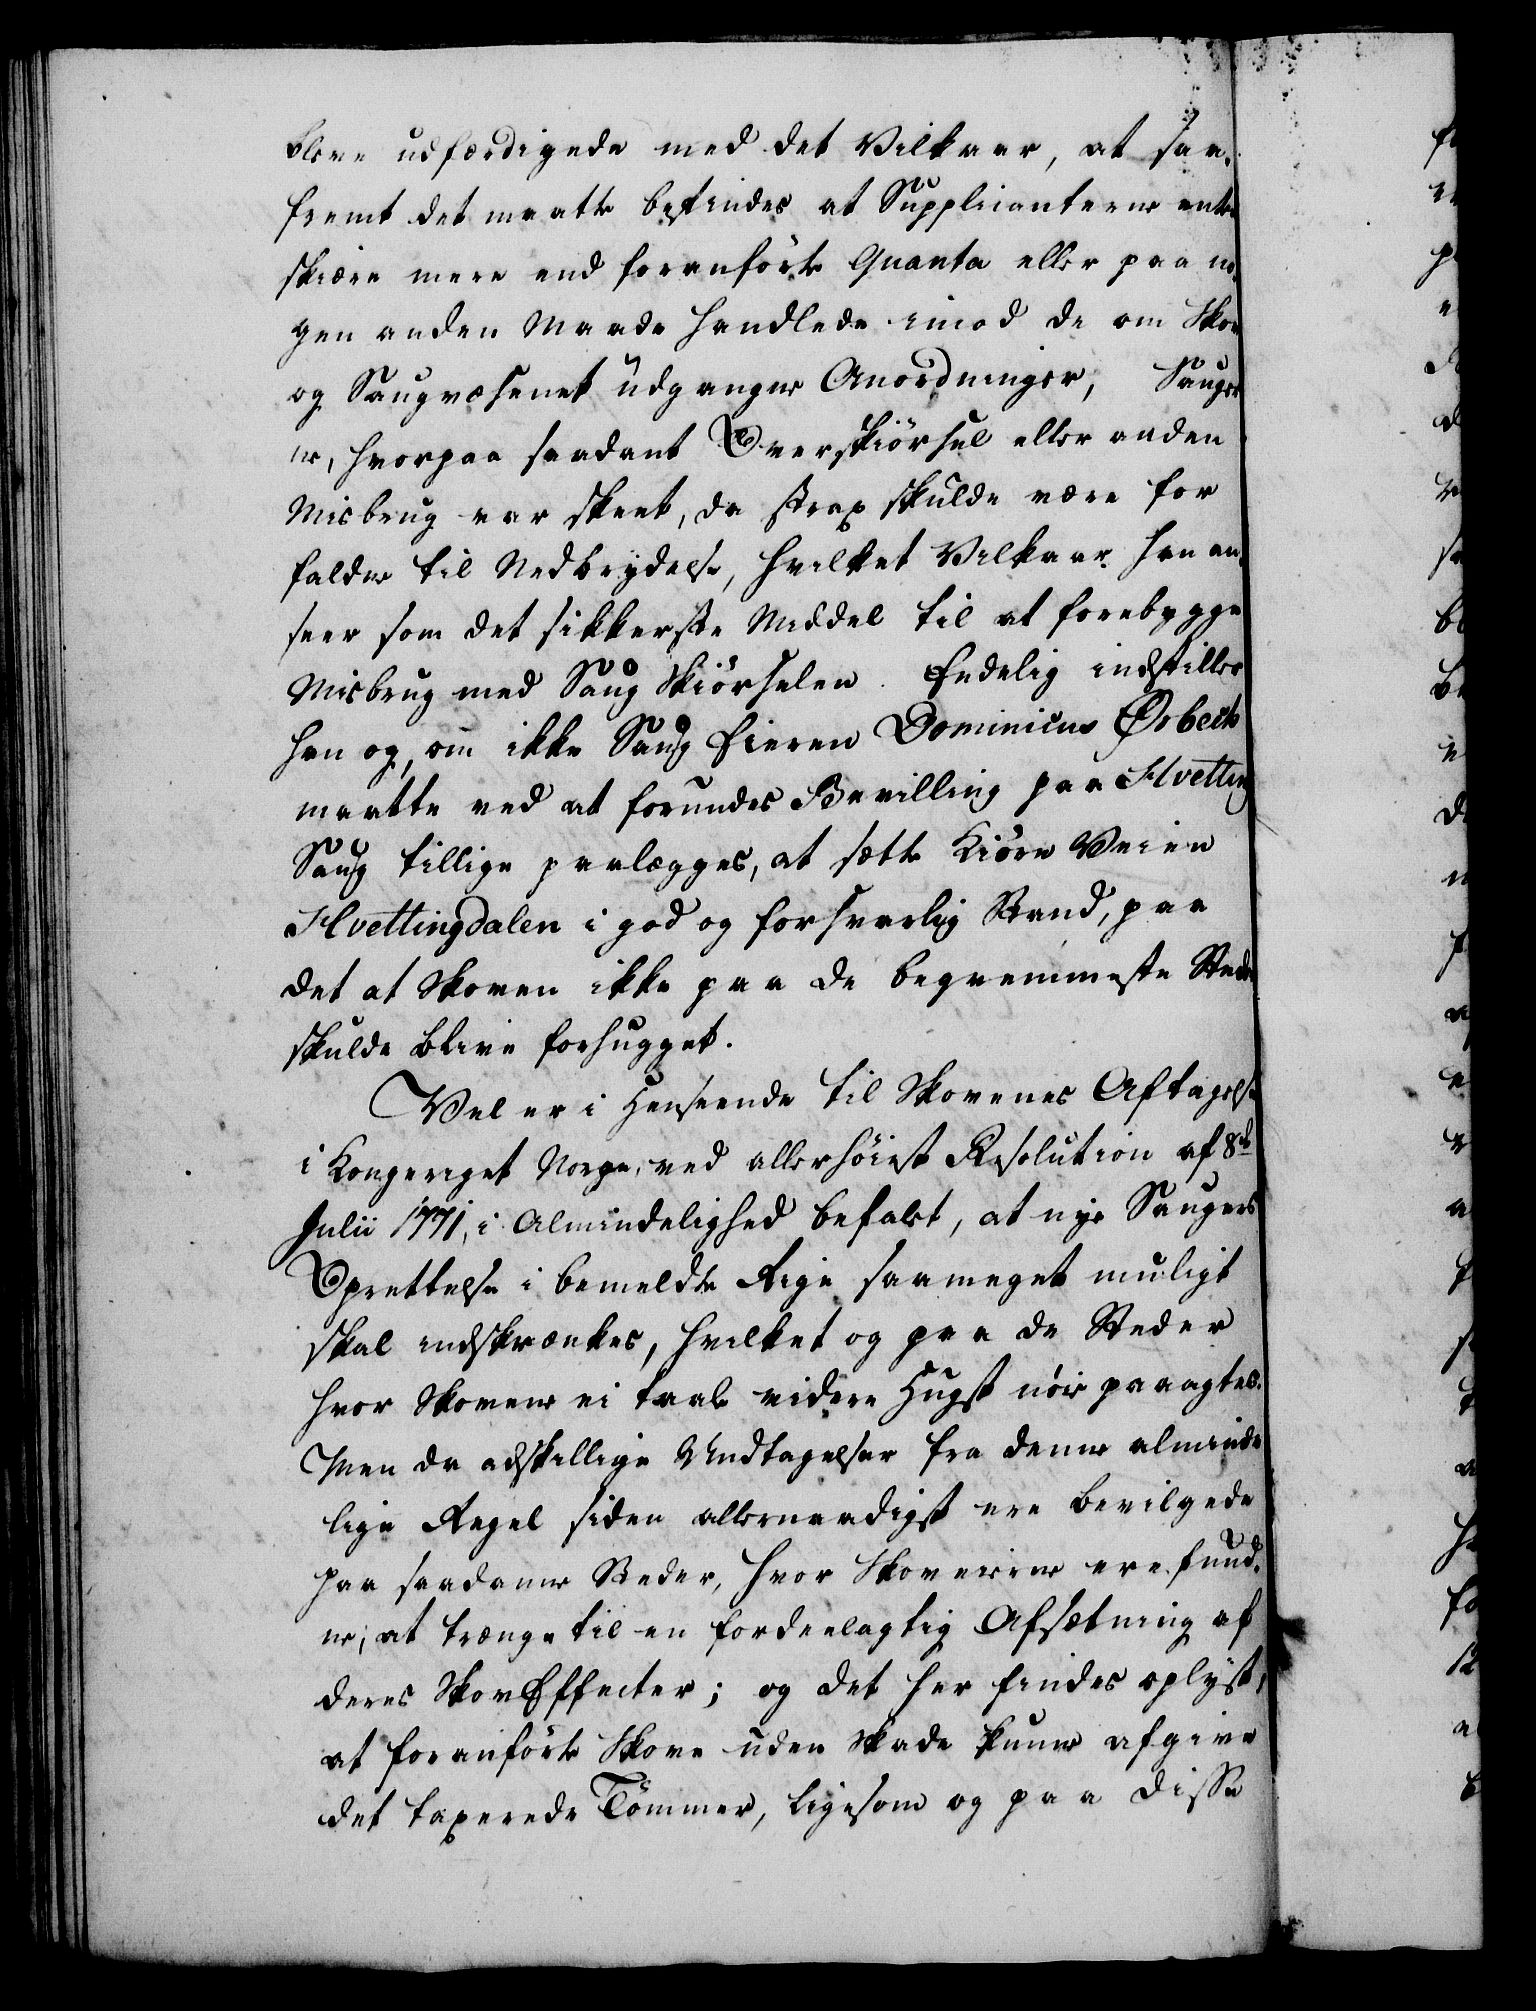 bleve udfærdigede med det Vilkaar, at saa-
fremt det maatte befindes at Supplicanterne enten
skiære mere end foranførte Quanta eller paa no-
gen anden Maade handlede imod de om Skov
og Saugvæsenet udgangne Anordninger, Sauger-
ne, hvorpaa saadant Overskiørsel eller anden
Misbrug var skeet, da strax skulde være for
faldne til Nedbrydelse, hvilket Vilkaar han an-
seer som det sikkerste Middel til at forebygge
Misbrug med Saug Skiørselen. Endelig indstiller
han og, om ikke Saug Eieren Dominicus Ørbeck
maatte ved at forundes Bevilling paa Hvetting
Saug tillige paalægges, at sætte Kiøre Veien
Hvettingdalen i god og forsvarlig Stand, paa
det at Skoven ikke paa de beqvemmeste Steder
skulde blive forhugget.
Vel er i Henseende til Skovenes Aftagelse
i Kongeriget Norge, ved allerhøiest Resolution af 8de
Julii 1771, i Almindelighed befalet, at nye Saugers
Oprettelse i bemeldte Rige saameget muligt
skal indskrænkes, hvilket og paa de Steder
hvor Skovene ei taale videre Hugst nøie paaagtes.
Men da adskillige Undtagelser fra denne alminde
lige Regel siden allernaadigst ere bevilgede
paa saadanne Steder, hvor Skoveierne ere fund-
ne, at trænge til en fordeelagtig Afsætning af
deres Skov Effecter; og det her findes oplyst,
at foranførte Skove uden Skade kunne afgive
det taxerede Tømmer, ligesom og paa disse